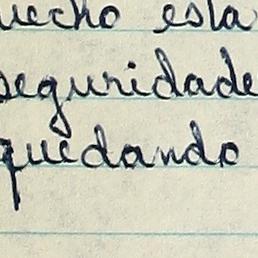 uecho esta
seguridade
quedando